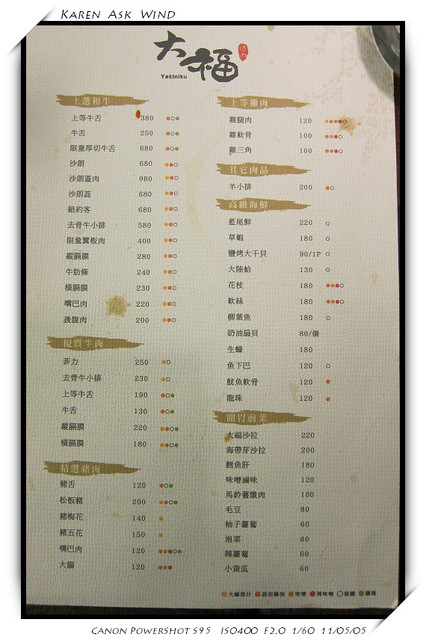 Karen Ask Wind
大福
Yakiniku
上選和牛
上等牛舌 380
牛舌 250
限量厚切牛舌 680
沙朗 680
沙朗蓋肉 980
沙朗蕊 680
紐約客 680
去骨牛小排 580
限量翼板肉 400
縱膈膜 280
牛肋條 240
橫膈膜 230
嘴巴肉 220
後腹肉 200
優質牛肉
菲力 250
去骨牛小排 230
上等牛舌 190
牛舌 130
縱膈膜 220
橫膈膜 180
精選豬肉
豬舌 120
松板豬 200
豬梅花 140
豬五花 150
嘴巴肉 120
大腸 120
上等雞肉
雞腿肉 120
雞軟骨 100
雞三角 100
其它肉品
羊小排 200
高級海鮮
藍尾鮮 220
草蝦 180
鹽烤大干貝 90/1P
大陸蛤 130
花枝 180
軟絲 180
柳葉魚 180
奶油扇貝 80/個
生蠔 180
魚下巴 120
魷魚軟骨 120
龍珠 120
開胃前菜
大福沙拉 220
海帶芽沙拉 200
鱈魚肝 180
味噌滷味 120
馬鈴薯燉肉 100
毛豆 80
柚子蘿蔔 60
泡菜 60
辣蘿蔔 60
小黃瓜 60
Canon PowerShot S95 ISO400 F2.0 1/60 11/05/05